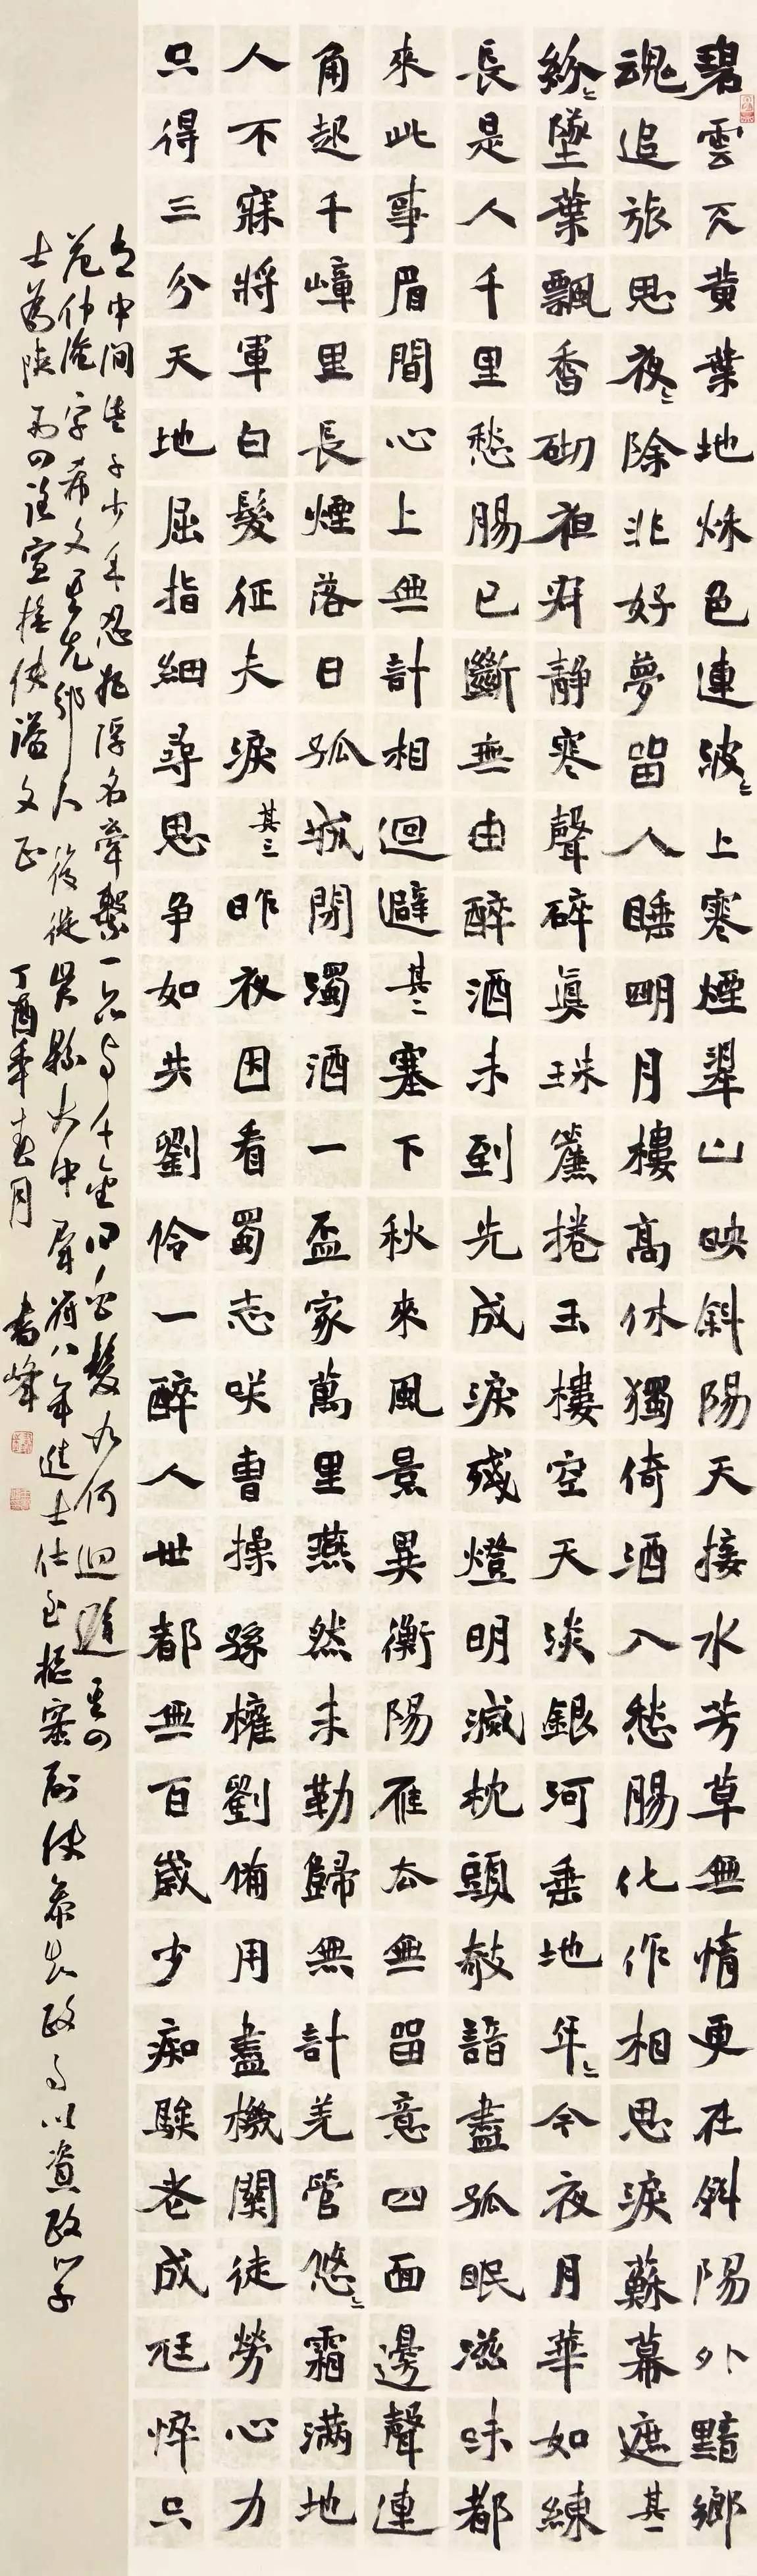 碧雲兲黄葉地秌色連波〻上寒煙翠山映斜陽天接水芳草無情更在斜陽外黯鄉
魂追旅思夜〻除非好夢留人睡明月樓高休獨倚酒入愁腸化作相思淚蘇幕遮其一
紛〻墜葉飄香砌夜寂静寒聲碎真珠簾捲玉樓空天淡銀河垂地年〻今夜月華如練
長是人千里愁腸已斷無由醉酒未到先成淚殘燈明滅枕頭敧諳盡孤眠滋味都
來此事眉間心上無計相迴避其二塞下秋來風景異衡陽雁去無留意四面邊聲連
角起千嶂里長煙落日孤城閉濁酒一盃家萬里燕然未勒歸無計羌管悠〻霜滿地
人不寐將軍白髮征夫淚其三昨夜因看蜀志咲曹操孫權劉備用盡機關徒勞心力
只得三分天地屈指細尋思争如共劉伶一醉人世都無百歲少痴騃老成尫悴只
有中间些子少年忍把浮名牽繫一品与千金问白髮如何迴避其四
范仲淹字希文其先邠人後徙吳縣大中祥符八年進士仕至樞密副使參知政事以資政學
士為陝西四路宣撫使謚文正 丁酉年春月 書峰